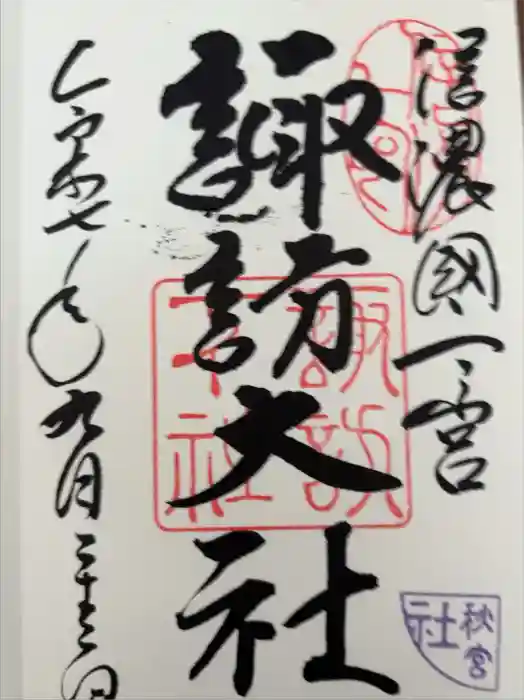 信濃國一宮
諏訪大社
令和七年九月二十三日
諏訪大社
秋宮
社